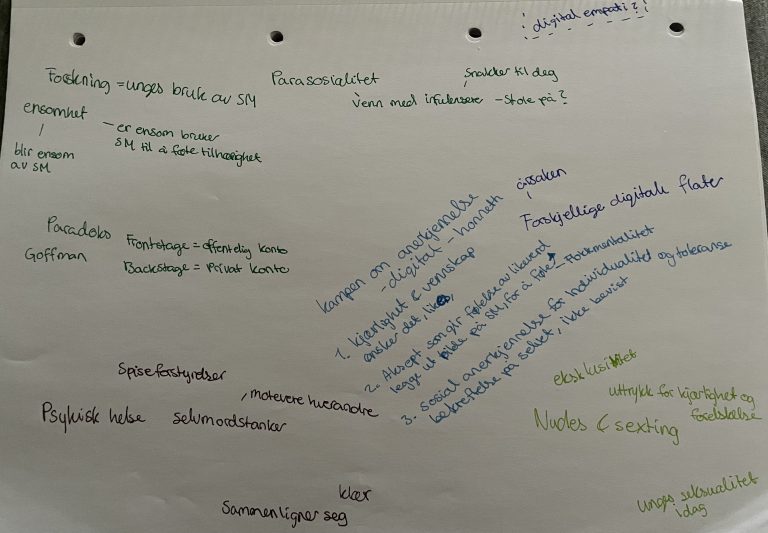 digital empati?
Forskning = unges bruk av SM
ensomhet
- er ensom bruker
SM til å føle tilhørighet
blir ensom
av SM
Parasosialitet
Snakker til deg
Venn med infulensere - Stole på?
Paradoks
Goffman
Frontstage = offentelig konto
Backstage = Privat konto
årsaken
Forskjellige digitale flater
kampen om anerkjennelse
- digital - honneth
1. kjærlighet & vennskap
ønsker det, likes,
2. Aksept som gir følelse av likeverd
legge ut bilde på SM, for å føle - Flokkmentalitet
3. sosial anerkjennelse for individualitet og toleranse
bekreftelse på selvet, ikke bevist
Spiseforstyrelser
, motevere hverandre
Psykisk helse selvmordstanker
klær
Sammenligner seg
eksklusivitet
uttrykk for kjærlighet og
forelskelse
Nudes & sexting
unges seksualitet
idag